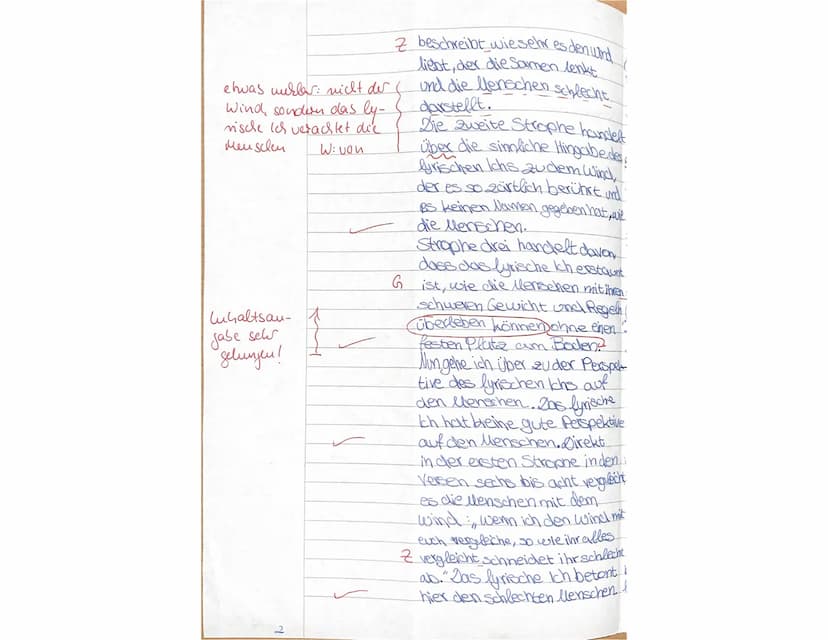 Z beschreibt, wie sehr es den Wind
liebt, der die Samen lenkt
etwas unklar: nicht der und die Menschen schlecht
Wind, sondern das ly- darstellt.
rische Ich verachtet die Die zweite Strophe handelt
Menschen W: von über die sinnliche Hingabe des
lyrischen Ichs zu dem Wind,
der es so zärtlich berührt und
es keinen Namen gegeben hat, wie
die Menschen.
Strophe drei handelt davon,
dass das lyrische Ich erstaunt
G ist, wie die Menschen mit ihren
schweren Gewicht und Regeln
Inhaltsan- überleben können ohne einen
gabe sehr festen Platz am Boden.
gelungen! Nun gehe ich über zu der Perspek-
tive des lyrischen Ichs auf
den Menschen. Das lyrische
Ich hat keine gute Perspektive
auf den Menschen. Direkt
in der ersten Strophe in den
Versen sechs bis acht vergleicht
es die Menschen mit dem
Wind: „Wenn ich den Wind mit
euch vergleiche, so wie ihr alles
Z vergleicht, schneidet ihr schlecht
ab." Das lyrische Ich betont
hier den schlechten Menschen
2